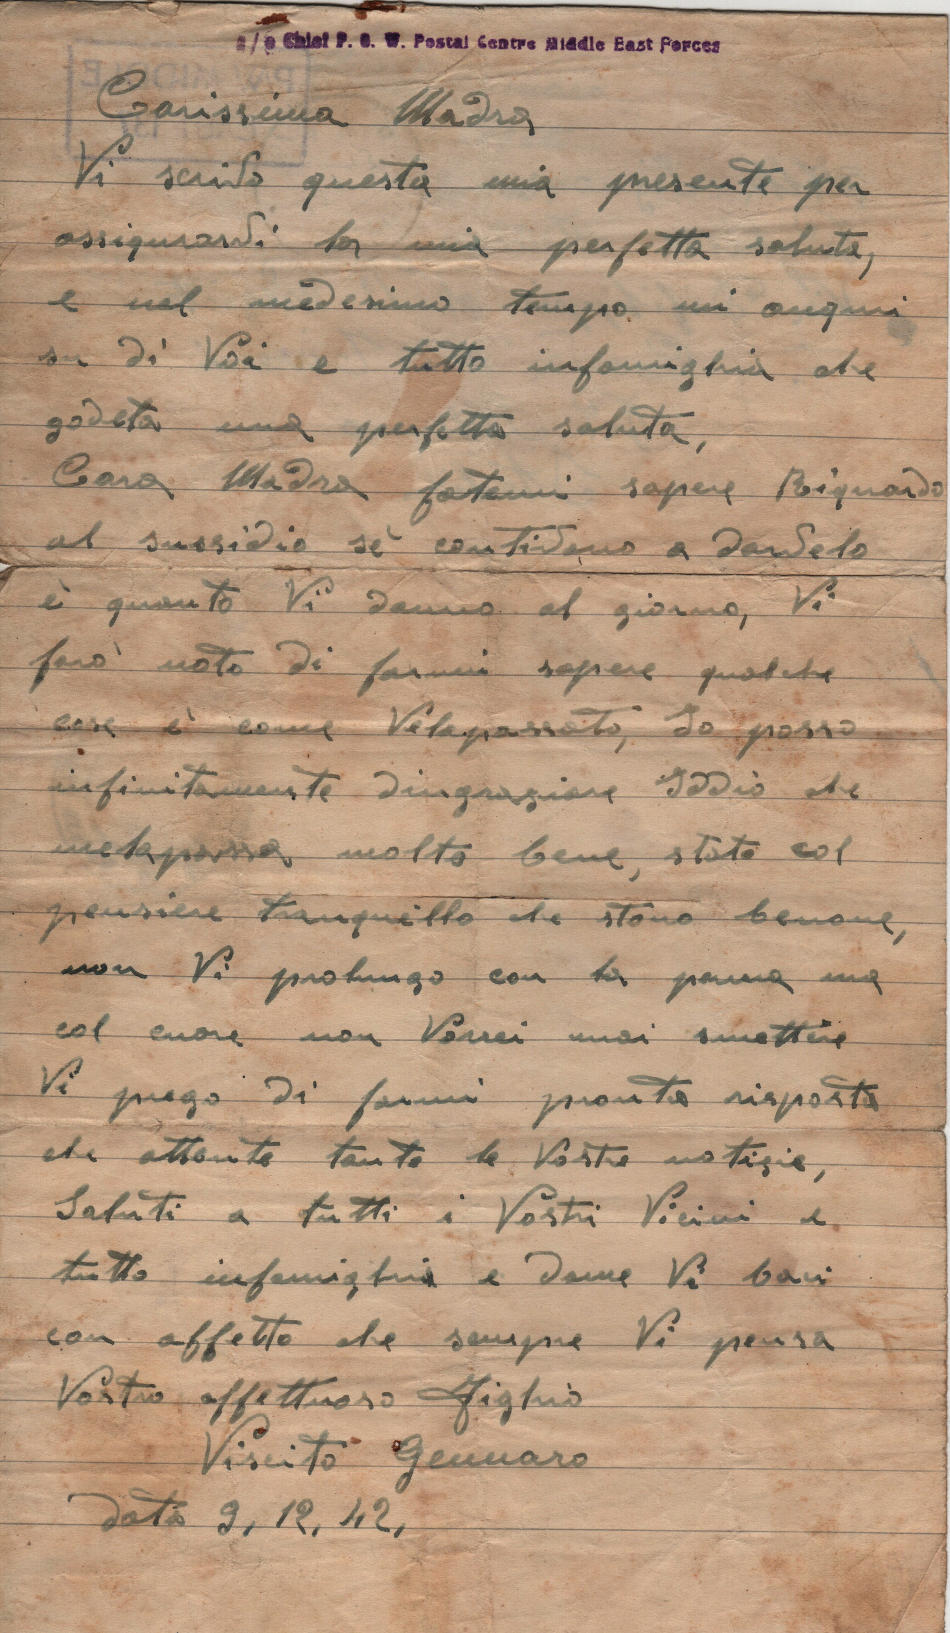 c/o Chief P. O. W. Postal Centre Middle East Forces
Carissima Madra
Vi scrivo questa mia presente per
assiqurarvi la mia perfetta saluta,
e nel medesimo tempo mi auquri
su di Voi e tutto infamighia che
godeta una perfetta saluta,
Cara Madra fatemi sapere Riquardo
al sussidio sè contiveno a darvelo
è quanto Vi danno al giorno, Vi
farò noto di farmi sapere qualche
cose è come Velapassato, Io posso
infinitamente dingraziare Iddio che
melapassa molto bene, state col
pensiere tranquillo che stono benone,
non Vi prolungo con la penna ma
col cuore non Vorrei mai smettere
Vi prego di farmi pronta risposta
che attente tante le Vostre notizie,
Saluti a tutti i Vostri Vicini e
tutto infamighia e dame Vi baci
con affetto che sempre Vi pensa
Vostro affettuoso Fighio
Viscito Gennaro
data 9, 12, 42,